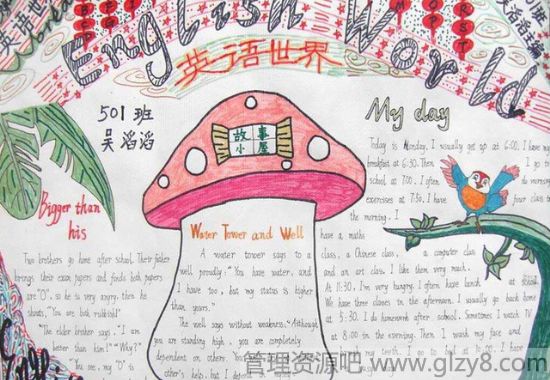 English World
英语世界
501班
吴滔滔
故事
小屋
My day
Today is Monday. I usually get up at 6:00. I have my
breakfast at 6:30. Then I go to
school at 7:00. I often
exercises at 7:30. I have
the morning. I
four class
have a maths
class, a Chinese class, a computer class
and an art class. I like them very much.
At 11:30, I'm very hungry. I often have lunch at school.
We have three classes in the afternoon. I usually go back home
at 5:30. I do homework after school. Sometimes I watch TV
at 8:00 in the evening. Then I wash my face and
Bigger than
his
Two brothers go home after school. Their father
brings their exam papers and finds both papers
are "0", so he is very angry, then he
shouts, "You are both rubbish!"
"The elder brother says, "I am
better than him!" "Why?"
"You see, my "0" is
Water Tower and Well
A water tower says to a
well proudly: "You have water, and
I have too, but my status is higher
than yours."
The well says without weakness: "Although
you are standing high, you are completely
dependent on others. You
others's help, but I
管理资源吧 www.glzy8.com